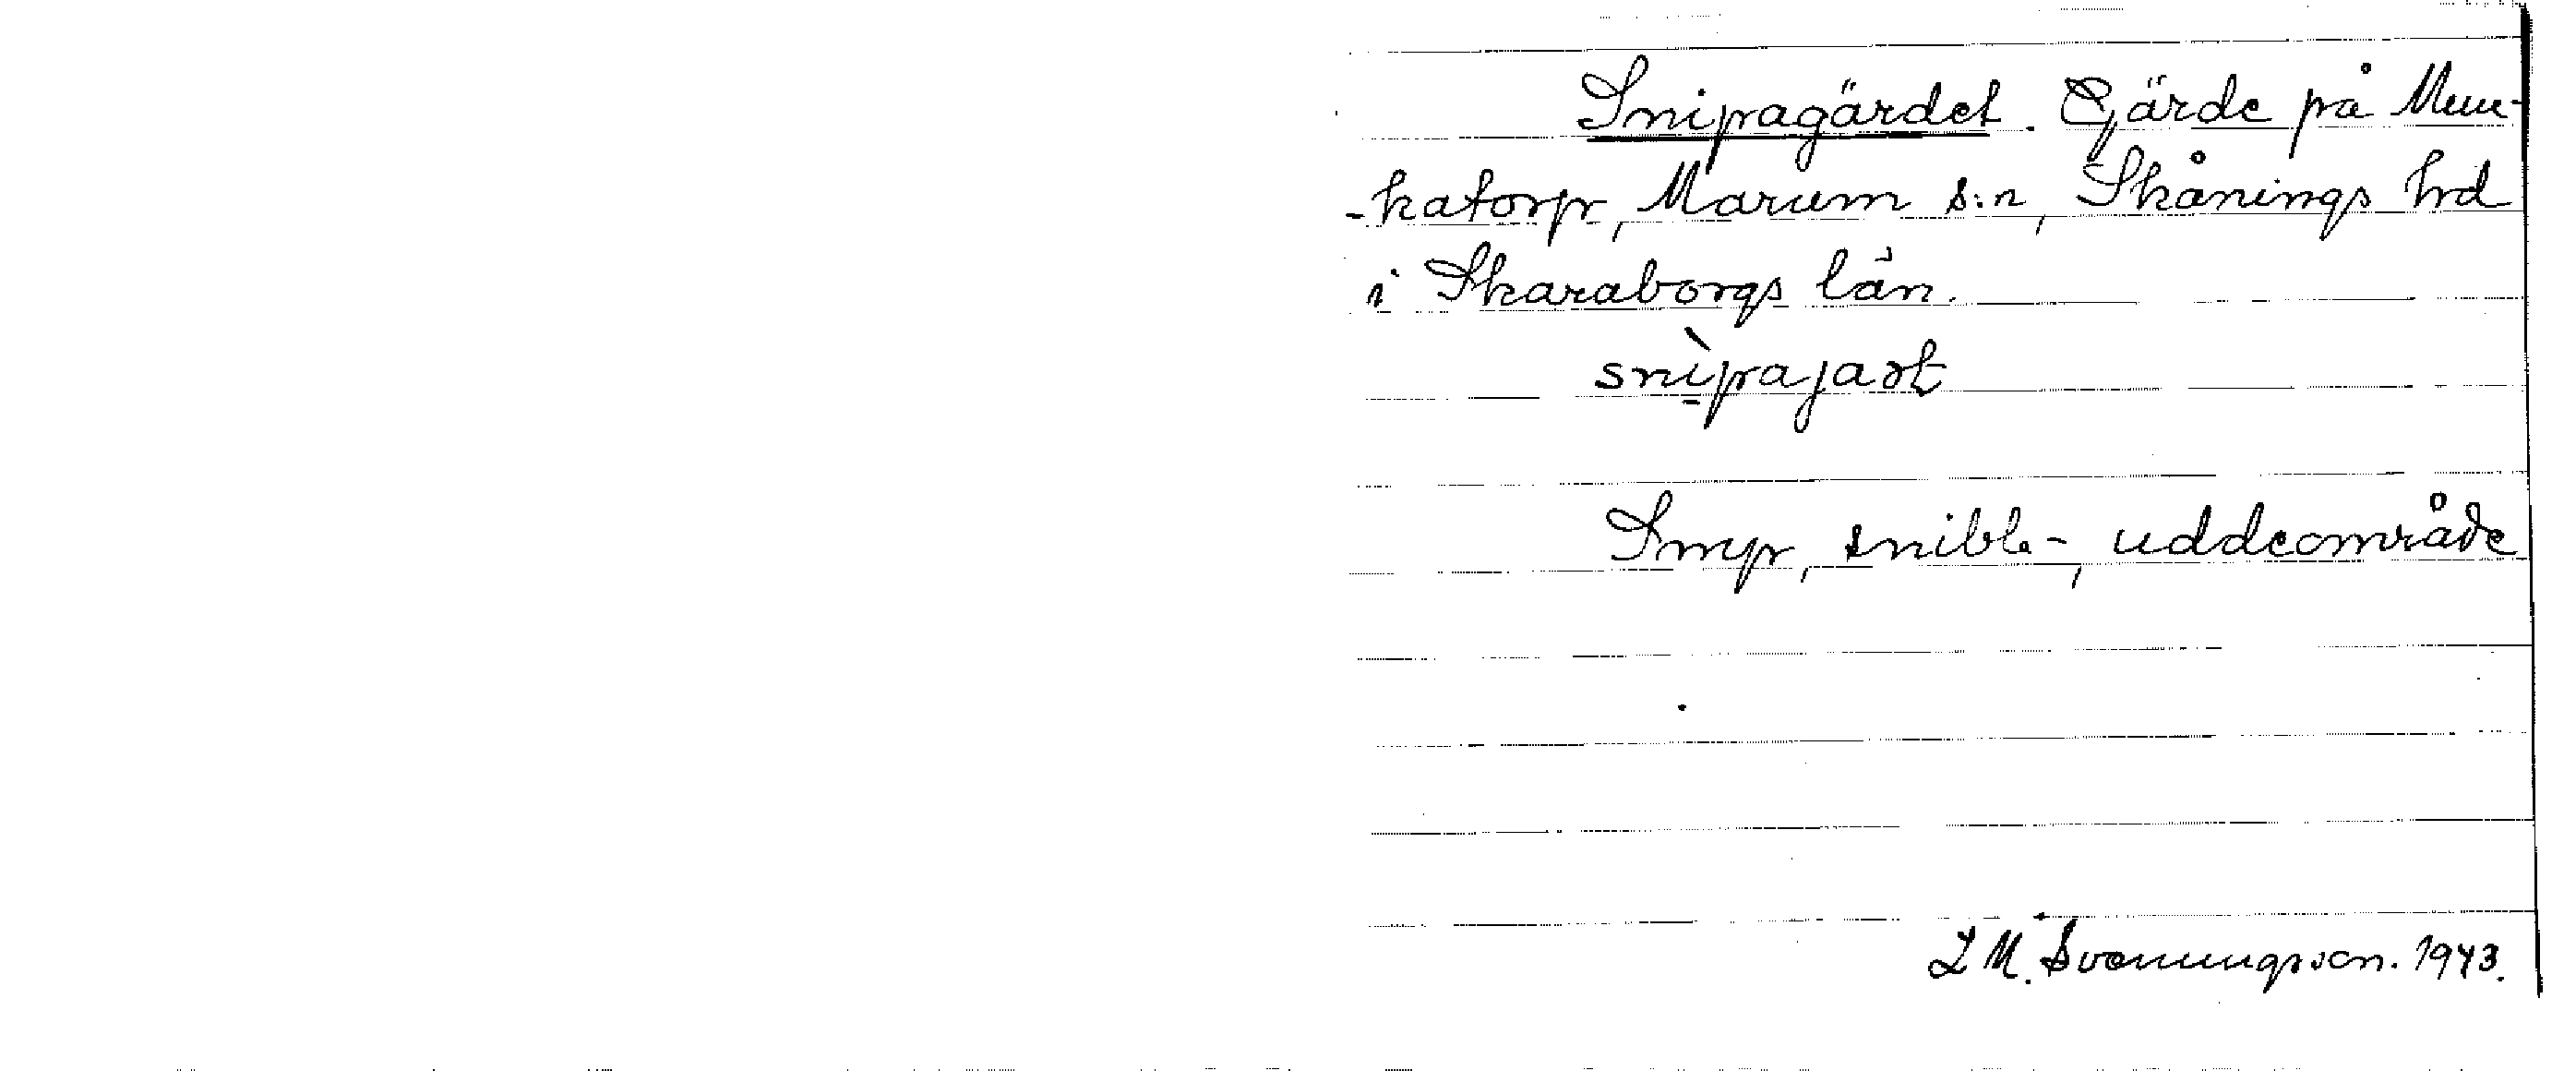 Snipagärdet. Gärde på Mun-
-katorp, Marum s:n, Skånings hd
i Skaraborgs län.
snìpajaʀt
Snip, snibb-, uddeområde
L M. Svenungsson. 1943.